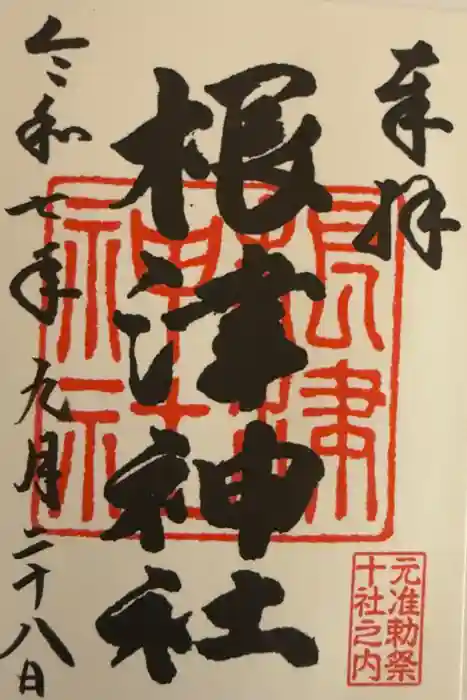 奉拝
根津神社
令和七年九月二十八日
根津神社
元准勅祭
十社之内